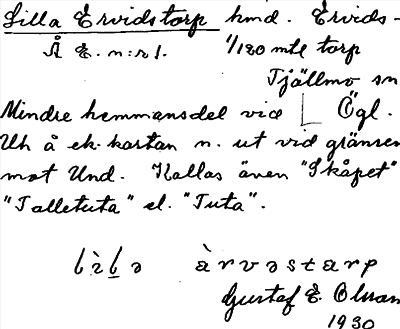 Lilla Ervidstorp hmd. Ervids-
Å E. n:r 1. 1/180 mtl torp
Tjällmo sn
Mindre hemmansdel vid Ögl.
Uh å ek. kartan n. ut vid gränsen
mot Und. Kallas även "Skåpet"
"Talletuta" el. "Tuta".
àrvəstarp
Gustaf E. Olsson
1930